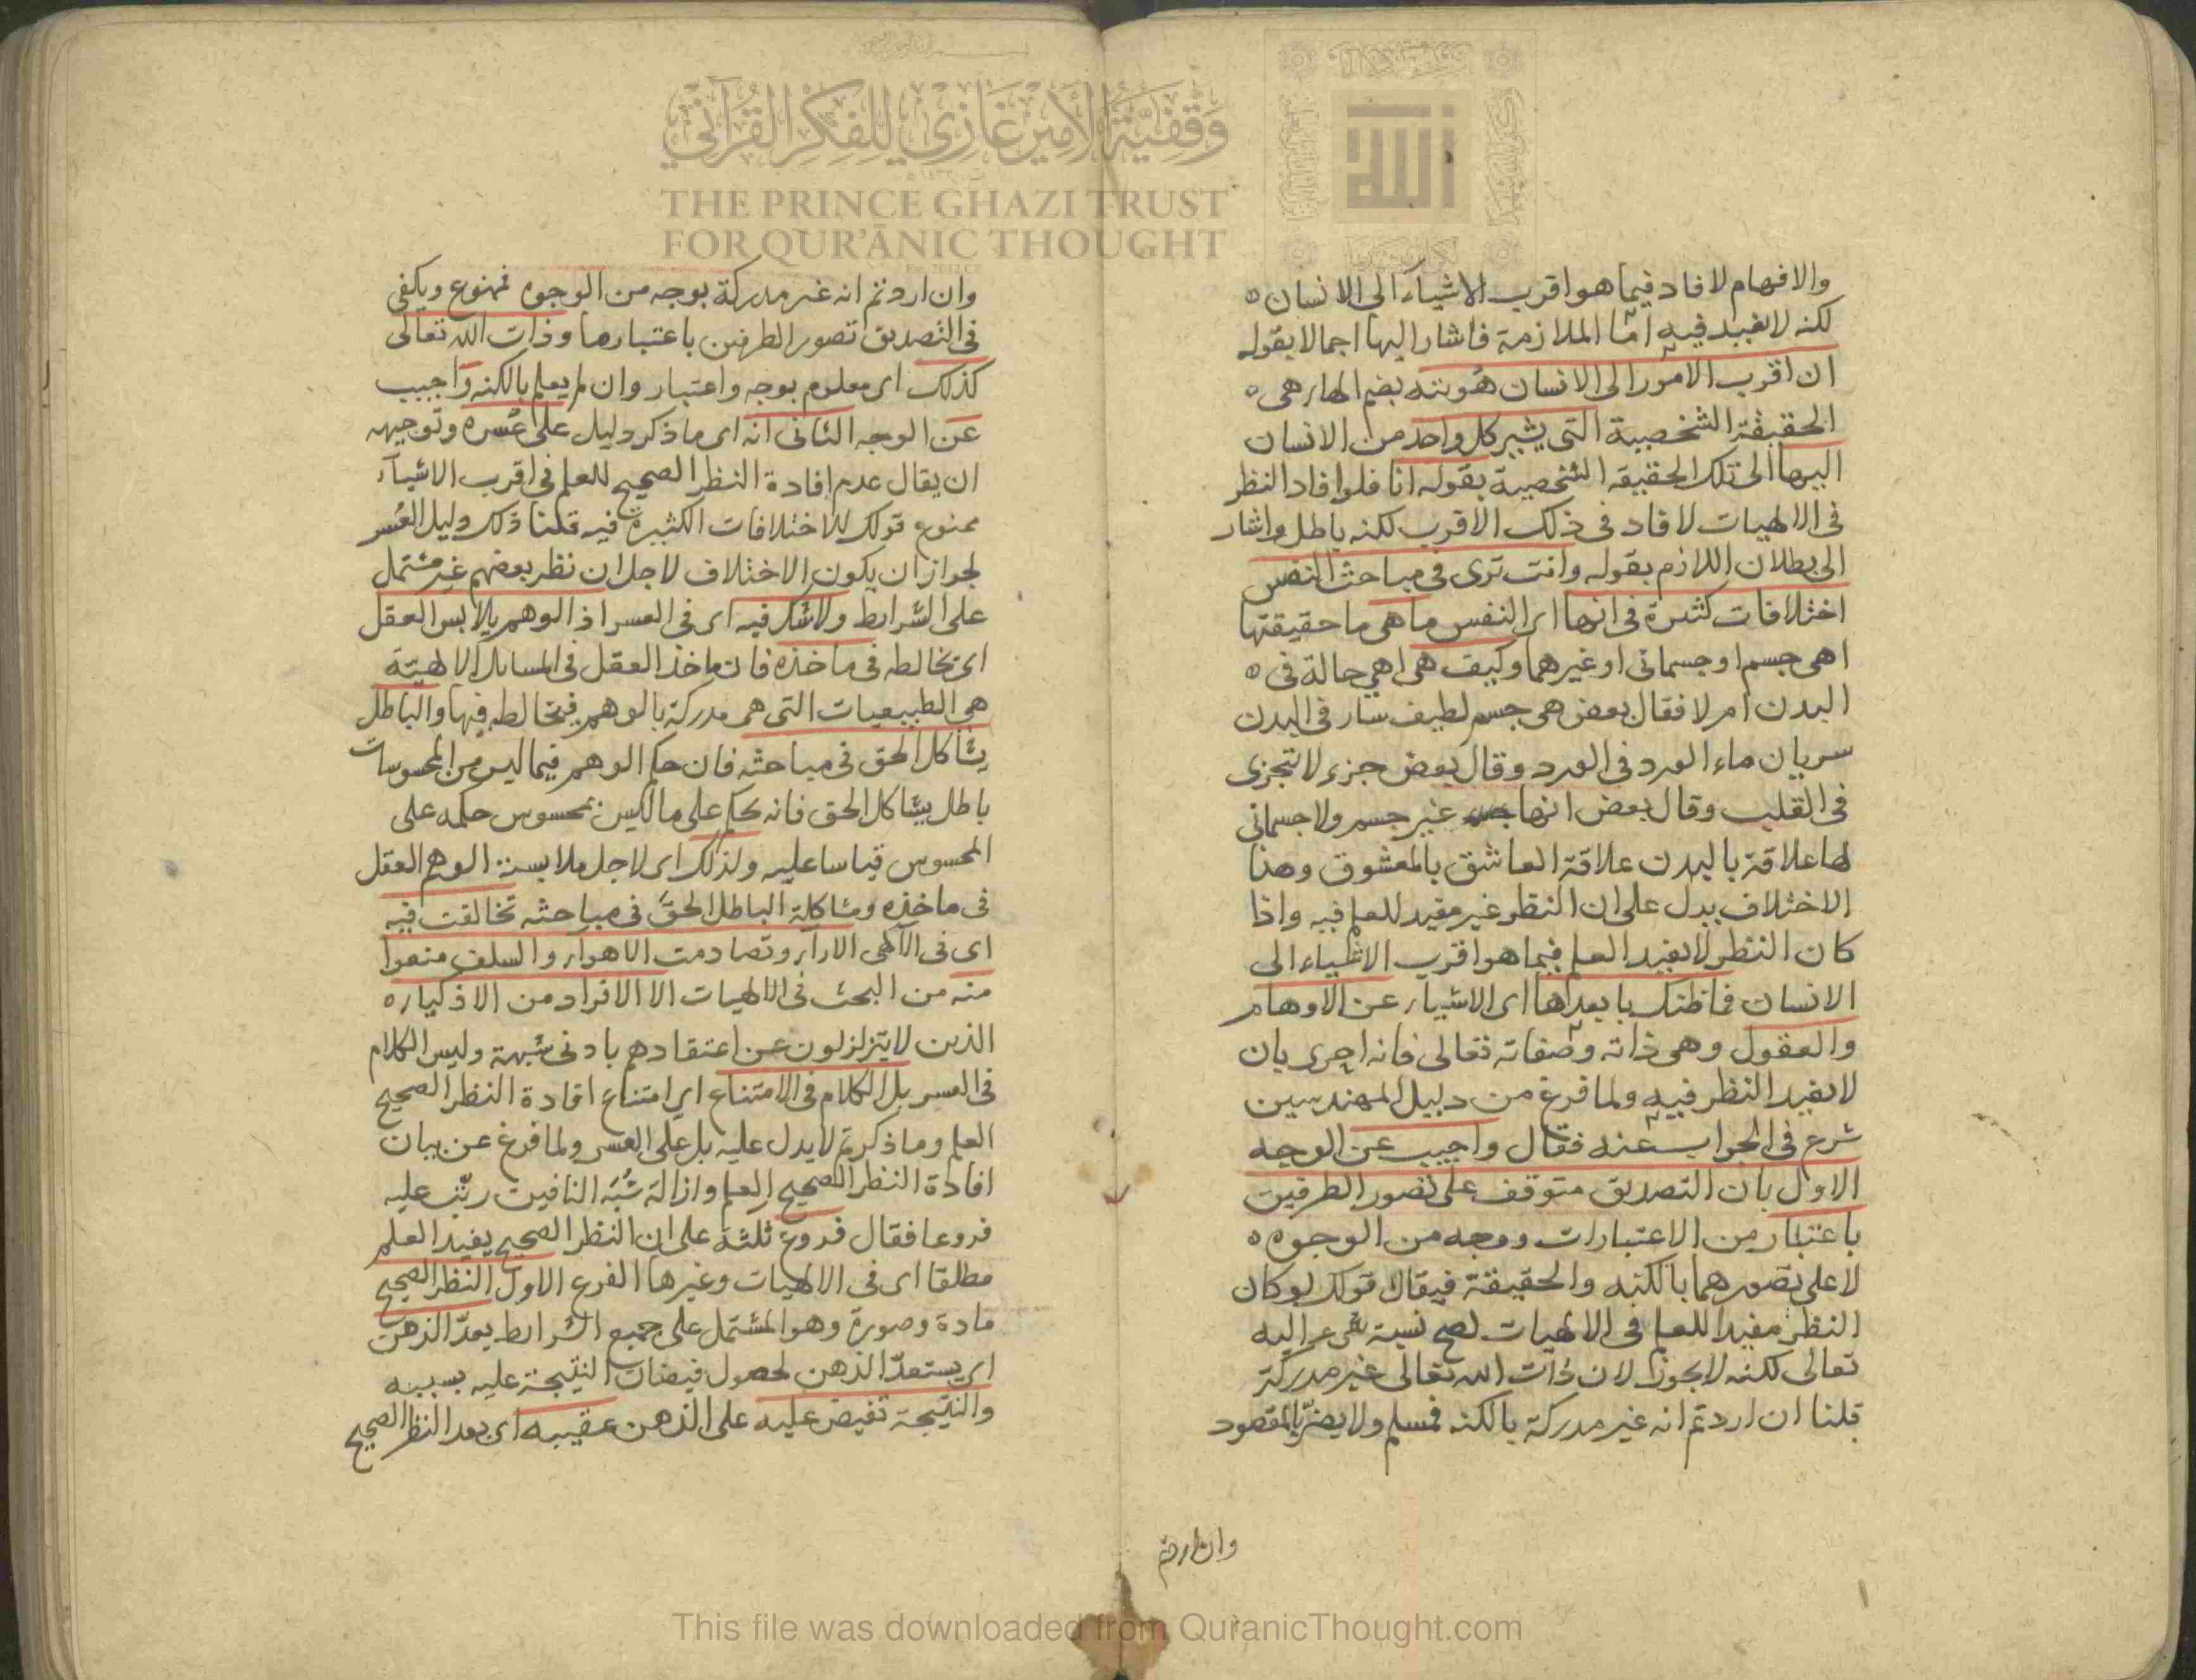 والافهام لافاد فيما هو اقرب الاشياء الى الانسان ه
لكنه لا يفيد فيه اما الملازمة فاشار اليها اجمالا بقوله
ان اقرب الامور الى الانسان هويته بضم الهاء هي ه
الحقيقة الشخصية التي يشير كل واحد من الانسان
اليها الى تلك الحقيقة الشخصية بقوله انا فلو افاد النظر
في الالهيات لافاد في ذلك الاقرب لكنه باطل واشار
الى بطلان اللازم بقوله وانت ترى في مباحث النفس
اختلافات كثيرة في انها اي النفس ما هي ما حقيقتها
اهي جسم او جسماني او غيرهما وكيف هي اهي حالة في ه
البدن ام لا فقال بعض هي جسم لطيف سار في البدن
سريان ماء الورد في الورد وقال بعض جزء لا تتجزى
في القلب وقال بعض انها غير جسم ولا جسماني
لها علاقة بالبدن علاقة العاشق بالمعشوق وهذا
الاختلاف يدل على ان النظر غير مفيد للعلم فيه واذا
كان النظر لا يفيد العلم فيما هو اقرب الاشياء الى
الانسان فما ظنك بابعدها اي الاشياء عن الاوهام
والعقول وهي ذاته وصفاته تعالى فانه احرى بان
لا يفيد النظر فيه ولما فرغ من دليل المهندسين
شرع في الجواب عنه فقال واجيب عن الوجه
الاول بان التصديق متوقف على تصور الطرفين
باعتبار من الاعتبارات ووجه من الوجوه ه
لا على تصورهما بالكنه والحقيقة فيقال قولك لو كان
النظر مفيدا للعلم في الالهيات لصح نسبة اليه
تعالى لكنه لا يجوز لان ذات الله تعالى غير مدركة
قلنا ان اردتم انه غير مدركة بالكنه فمسلم ولا يضر بالمقصود
وان اردتم
وان اردتم انه غير مدركة بوجه من الوجوه فممنوع ويكفي
في التصديق تصور الطرفين باعتبار ما وذات الله تعالى
كذلك اي معلوم بوجه واعتبار وان لم يعلم بالكنه واجيب
عن الوجه الثاني انه اي ما ذكر دليل على عسره وتوجيهه
ان يقال عدم افادة النظر الصحيح للعلم في اقرب الاشياء
ممنوع قولك للاختلافات الكثيرة فيه قلنا ذلك دليل العسر
لجواز ان يكون الاختلاف لاجل ان نظر بعضهم غير مشتمل
على الشرايط ولا شك فيه اي في العسر اذ الوهم يلابس العقل
اي تخالطه في ماخذه فان ماخذ العقل في المسائل الالهية
هي الطبيعيات التي هي مدركة بالوهم فيخالطه فيها والباطل
يشاكل الحق في مباحثه فان حكم الوهم فيما ليس من المحسوسات
باطل يشاكل الحق فانه يحكم على ما ليس بمحسوس حكمه على
المحسوس قياسا عليه ولذلك اي لاجل ملابسة الوهم العقل
في ماخذه ومشاكلة الباطل الحق في مباحثه تخالفت فيه
اي في الالهي الاراء وتصادمت الاهواء والسلف منعوا
منه من البحث في الالهيات الا الافراد من الاذكياء ه
الذين لا يتزلزلون عن اعتقادهم بادنى شبهة وليس الكلام
في العسر بل الكلام في الامتناع اي امتناع افادة النظر الصحيح
العلم وما ذكرتم لا يدل عليه بل على العسر ولما فرغ عن بيان
افادة النظر الصحيح العلم وازالة شبه النافين رتب عليه
فروعا فقال فروع ثلثة على ان النظر الصحيح يفيد العلم
مطلقا اي في الالهيات وغيرها الفرع الاول النظر الصحيح
مادة وصورة وهو المشتمل على جميع الشرايط يعد الذهن
اي يستعد الذهن لحصول فيضان النتيجة عليه بسببه
والنتيجة تفيض عليه على الذهن عقيبه اي بعد النظر الصحيح
وقفية الأمير غازي للفكر القرآني
THE PRINCE GHAZI TRUST
FOR QUR'ĀNIC THOUGHT
الله
This file was downloaded from QuranicThought.com